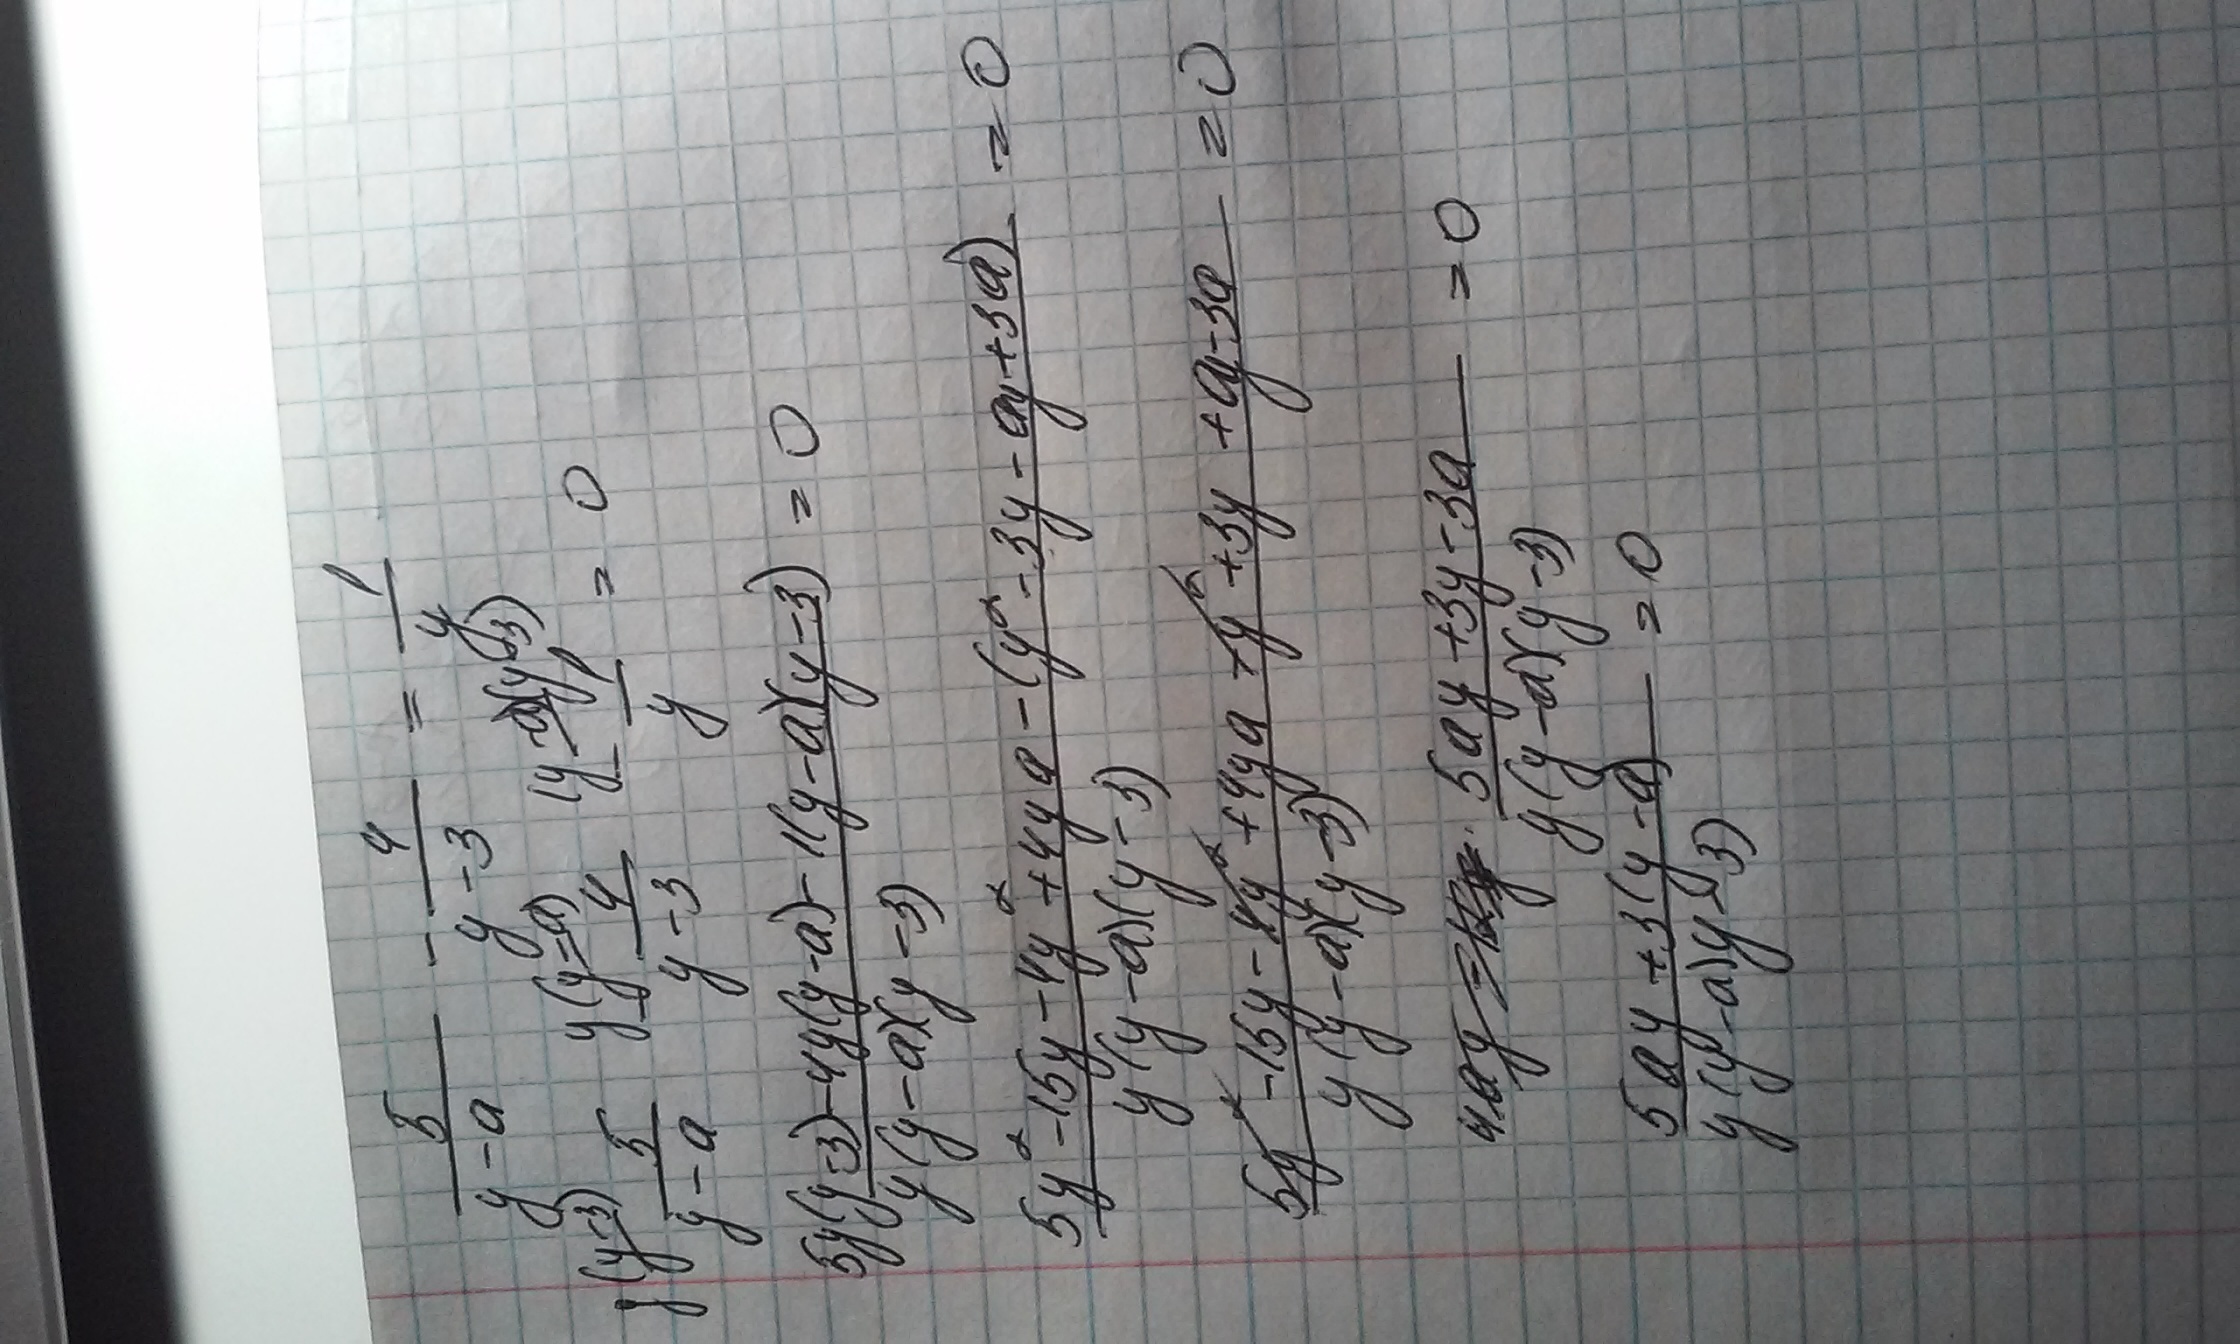 5/(y-a) - 4/(y-3) = 1/y
y(y-3) y(y-a) (y-a)(y-3)
5/(y-a) - 4/(y-3) - 1/y = 0
(5y(y-3)-4y(y-a)-1(y-a)(y-3))/(y(y-a)(y-3)) = 0
(5y²-15y-4y²+4ya-(y²-3y-ay+3a))/(y(y-a)(y-3)) = 0
(5y²-15y-4y²+4ya-y²+3y+ay-3a)/(y(y-a)(y-3)) = 0
(5ay+3y-3a)/(y(y-a)(y-3)) = 0
(5ay+3(y-a))/(y(y-a)(y-3)) = 0